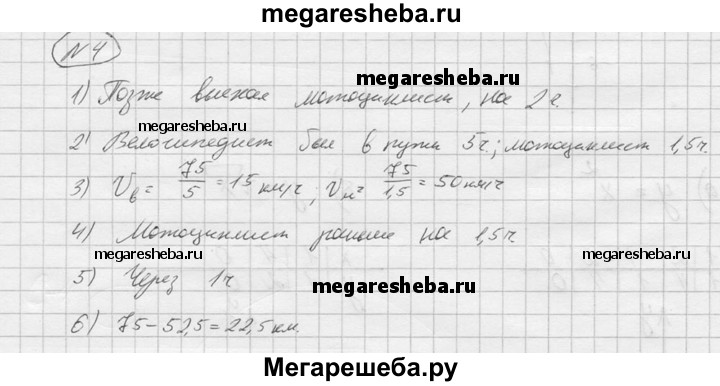 megaresheba.ru
№4
1) Позже выехал мотоциклист, на 2 ч.
megaresheba.ru
megaresheba.ru
2) Велосипедист был в пути 5ч.; мотоциклист 1,5ч.
3) Vв = 75/5 = 15 км/ч; Vм = 75/1,5 = 50 км/ч
4) Мотоциклист раньше на 1,5ч
megaresheba.ru
megaresheba.ru
5) Через 1ч
megaresheba.ru
6) 75-52,5=22,5км.
Мегарешеба.ру